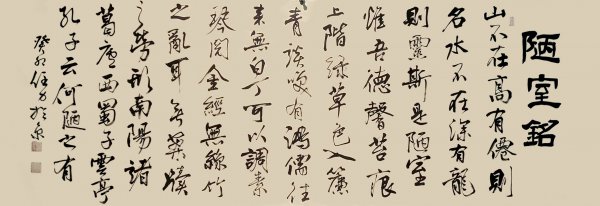 陋室銘
山不在高有僊則
名水不在深有龍
則靈斯是陋室
惟吾德馨苔痕
上階綠草色入簾
青談咲有鴻儒往
來無白丁可以調素
琴閱金經無絲竹
之亂耳無案牘
之勞形南陽諸
葛廬西蜀子雲亭
孔子云何陋之有
癸卯